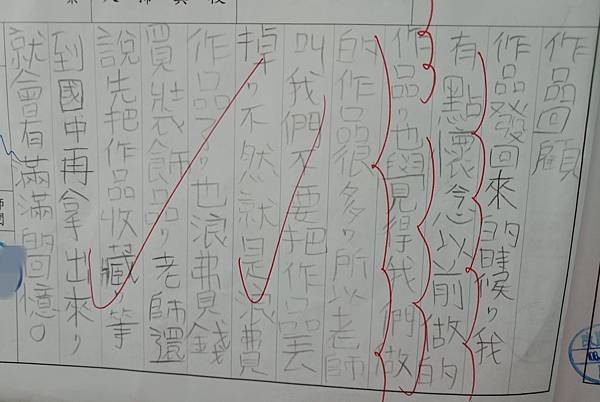 作品回顧
作品發回來的時候，我
有點懷念以前故的
作品，也覺得我們故
的作品很多，所以老師
叫我們不要把作品丟
掉，不然就是浪費
作品了，也浪費錢
買裝飾品，老師還
說先把作品收藏等
到國中再拿出來，
就會有滿滿回憶。